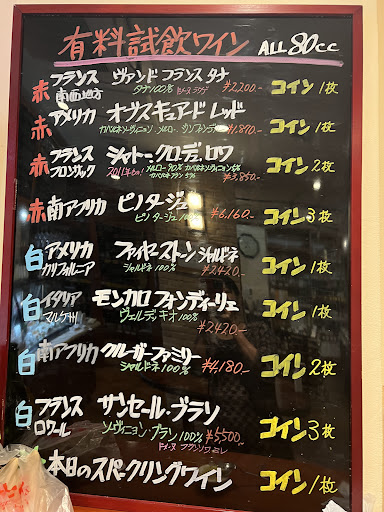 有料試飲ワイン ALL 80cc
赤 フランス ヴァンド フランス タナ
南西地方 タナ100% ¥2,200- コイン1枚
赤 アメリカ オブスキュアード レッド
¥1,870- コイン1枚
赤 フランス シャトー・クロ・デュ・ロワ
フロンサック メルロー90% カベルネソーヴィニョン5%
カベルネフラン5% ¥3,850- コイン2枚
赤 南アフリカ ピノタージュ
ピノタージュ100% ¥6,160- コイン3枚
白 アメリカ ファイヤーストーン シャルドネ
カリフォルニア シャルドネ100% ¥2420- コイン1枚
白 イタリア モンカロ フォンディーリェ
マルケ州 ヴェルデッキオ100% コイン1枚
¥2420-
白 南アフリカ クルーガーファミリー
シャルドネ100% ¥4,180- コイン2枚
白 フランス サンセール・ブラン
ロワール ソーヴィニョン・ブラン100% ¥5,500- コイン3枚
本日のスパークリングワイン コイン1枚